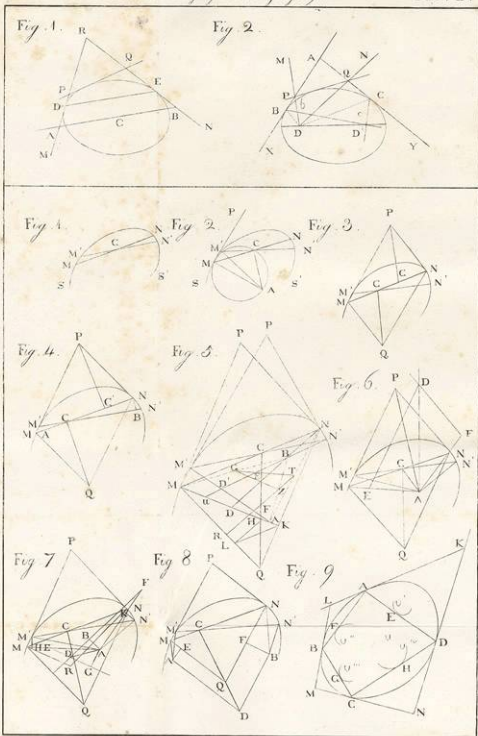 Fig. 1.
R
Q
P
E
D
C
B
A
M
N
Fig. 2.
M
A
N
Q
P
b
C
B
c
D
D'
X
Y
Fig. 1.
N
N'
M'
C
M
S
S'
Fig. 2
P
M'
C
N
M
N
S
A
S'
Fig. 3
P
C
N
N'
M'
M
C
Q
Fig. 4.
P
C'
N
N'
B
M'
M
A
C
Q
Fig. 5
P
P
N
N'
M'
C
B
G
T
M
D'
Z
u
D
F
H
A
K
R
L
Q
Fig. 6
P
D
F
N
N'
C
M'
M
E
A
Q
Fig. 7
P
F
K
N
N'
M'
C
B
M
H
E
D
A
R
G
Q
Fig. 8
P
N
N'
M'
C
M
E
F
A
B
Q
D
Fig. 9
K
A
L
E
u'
F
u''
B
D
G
u'''
H
M
C
N